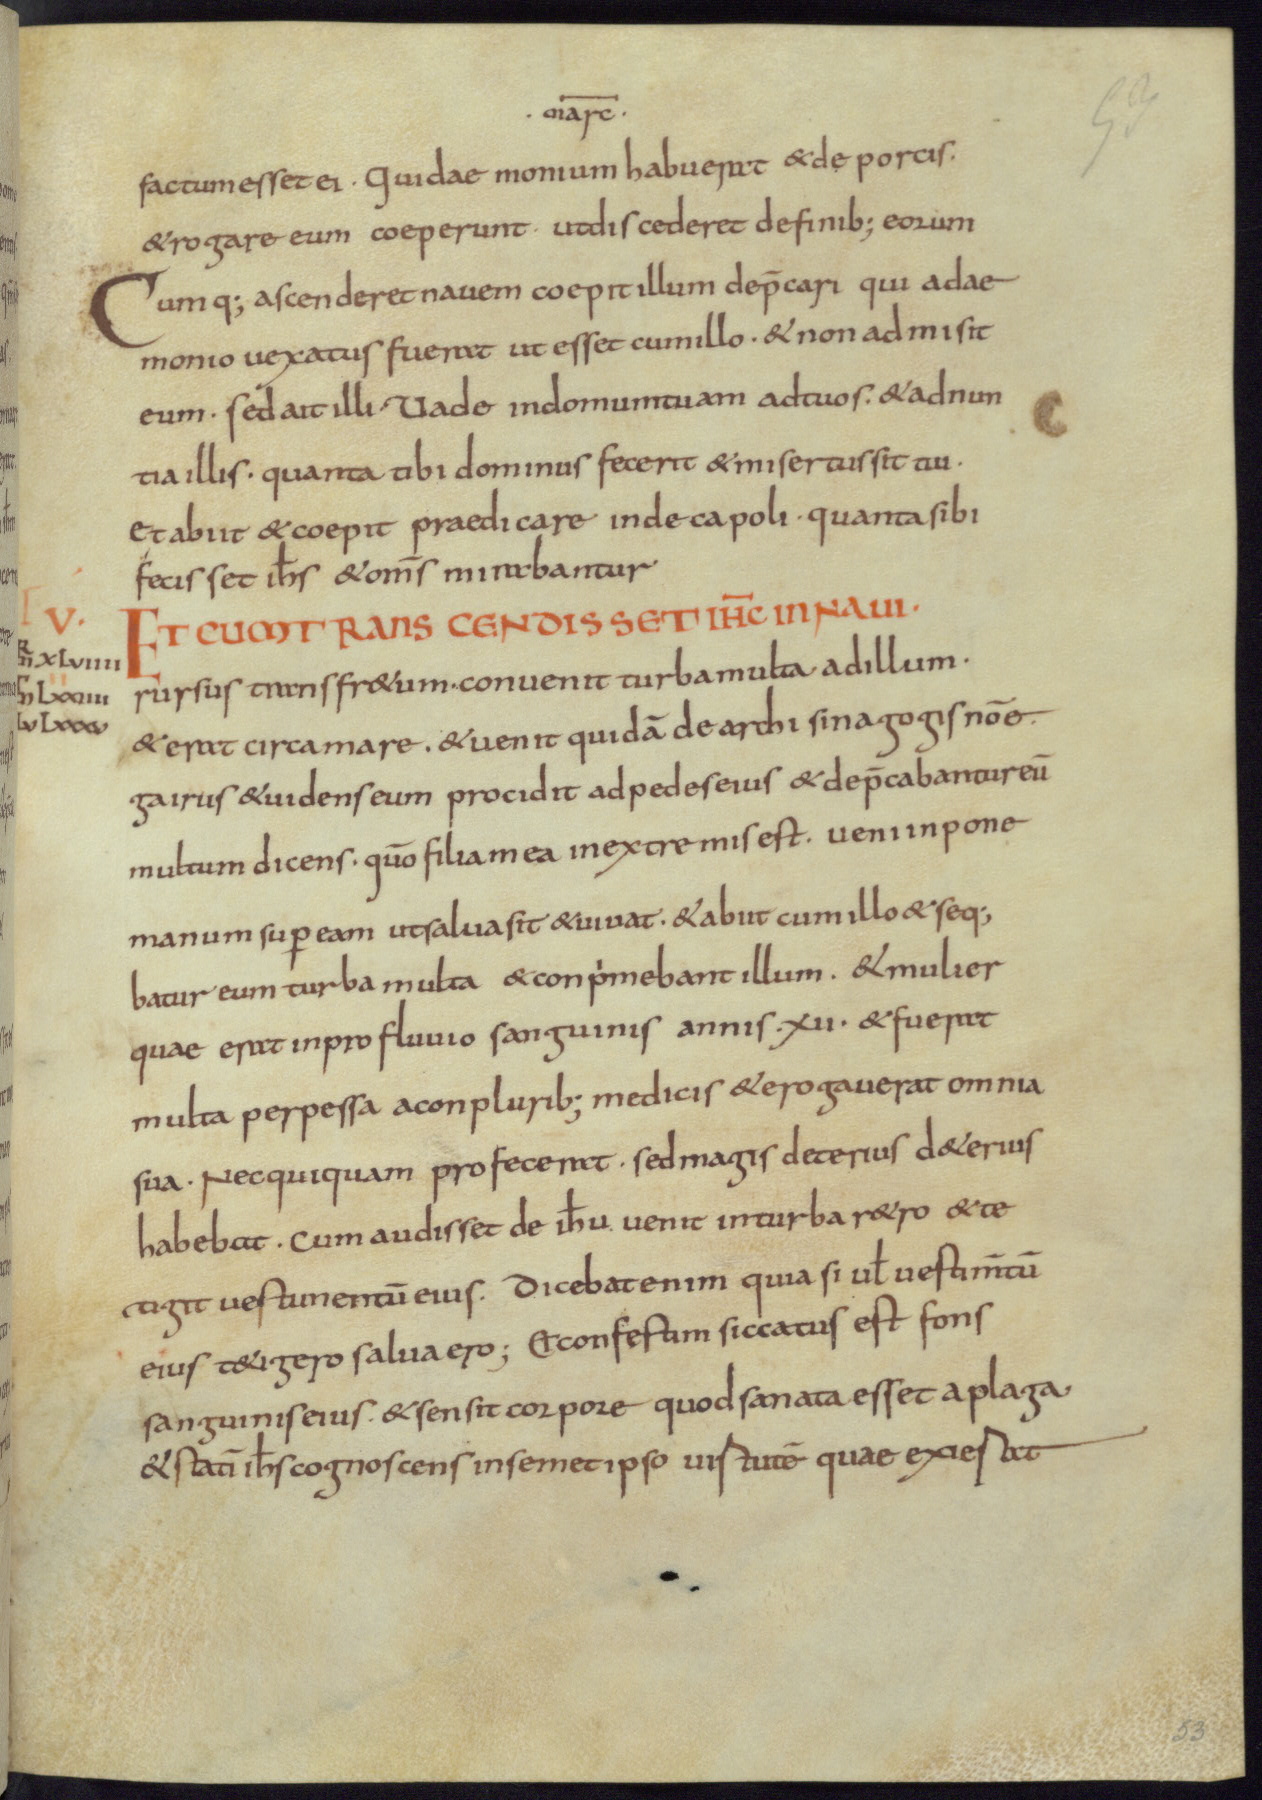 · marc̄ ·
53
factum esset ei · Qui daemonium habuerat & de porcis.
& rogare eum coeperunt · ut discederet de finib; eorum
Cumq; ascenderet navem coepit illum dep̄cari qui a dae
monio vexatus fuerat ut esset cum illo · & non admisit
eum · sed ait illi · Vade in domum tuam ad tuos. & adnun
tia illis · quanta tibi dominus fecerit & misertus sit tui ·
Et abiit & coepit praedicare in decapoli · quanta sibi
fecisset ih̄s & om̄s mirabantur
V.
ET CUM TRANSCENDISSET IH̄C IN NAVI ·
XLVIIII
LXXIIII
LXXXV
rursus trans fr&um · convenit turba multa ad illum ·
& erat circa mare . & venit quidā de archisinagogis nōe
gairus & videns eum procidit ad pedes eius & dep̄cabantur eū
multum dicens · qūo filia mea in extremis est . veni inpone
manum sup̱ eam ut salva sit & vivat . & abiit cum illo & seq;
batur eum turba multa & conpͥmebant illum . & mulier
quae erat in profluvio sanguinis annis · xii · & fuerat
multa perpessa a conplurib; medicis & erogaverat omnia
sua · Nec quiquam profecerat . sed magis deterius d&erius
habebat . Cum audisset de ih̄u venit in turba r&ro & te
tigit vestimentū eius . Dicebat enim quia si vƚ vestim̄tū
eius t&igero salva ero ; Et confestim siccatus est fons
sanguinis eius . & sensit corpore quod sanata esset a plaga
& statī ih̄s cognoscens in semet ipso virtutē quae exierat
53